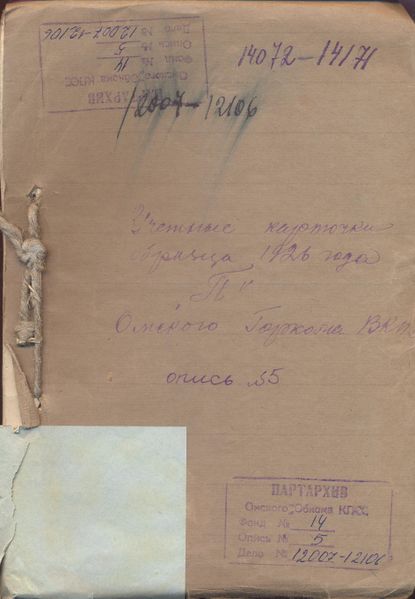 ПАРТАРХИВ
Омского Обкома КПСС
Фонд № 14
Опись № 5
Дело № 12007-12106
14072-14171
12007-12106
Учетные карточки
образца 1926 года
"П"
Омского Горкома ВКП
опись №5
ПАРТАРХИВ
Омского Обкома КПСС
Фонд № 14
Опись № 5
Дело № 12007-12106